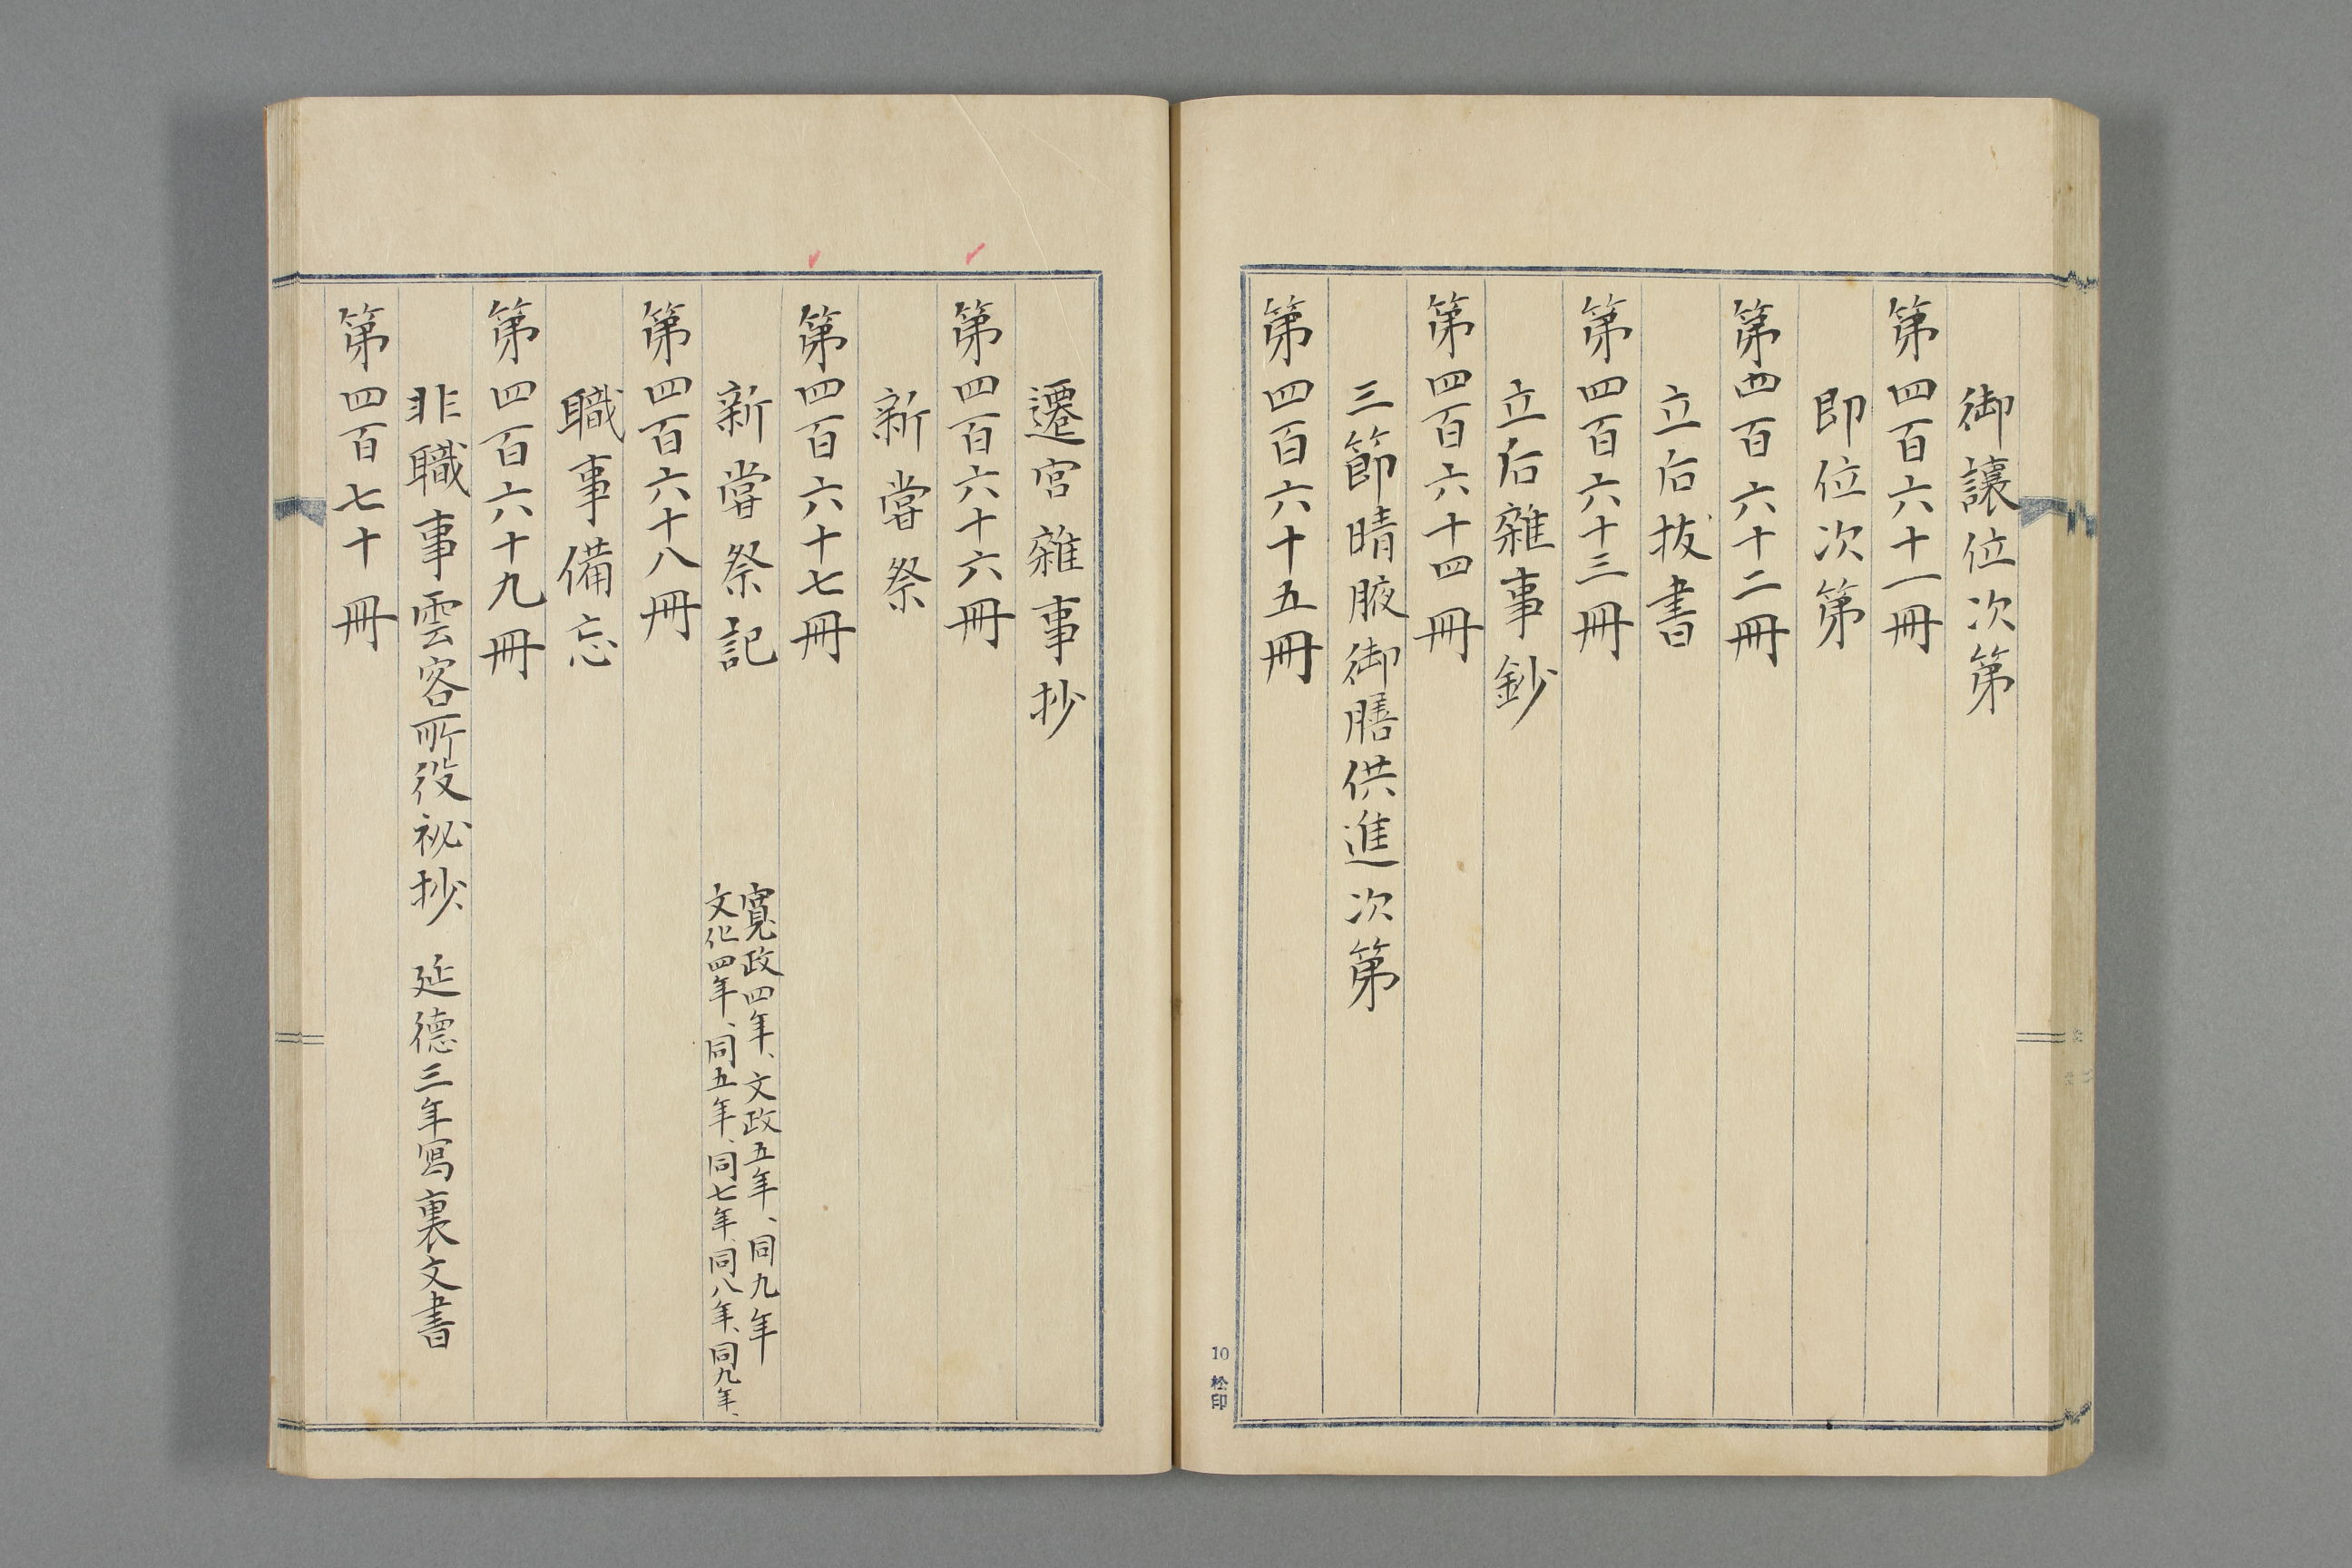 御讓位次第
第四百六十一冊
即位次第
第四百六十二冊
立后抜書
第四百六十三冊
立后雜事鈔
第四百六十四冊
三節晴腋御膳供進次第
第四百六十五冊
10 松印
遷宮雜事抄
第四百六十六冊
新嘗祭
第四百六十七冊
新嘗祭記
寛政四年、文政五年、同九年
文化四年、同五年、同七年、同八年、同九年、
第四百六十八冊
職事備忘
第四百六十九冊
非職事雲客所役祕抄 延德三年寫裏文書
第四百七十冊